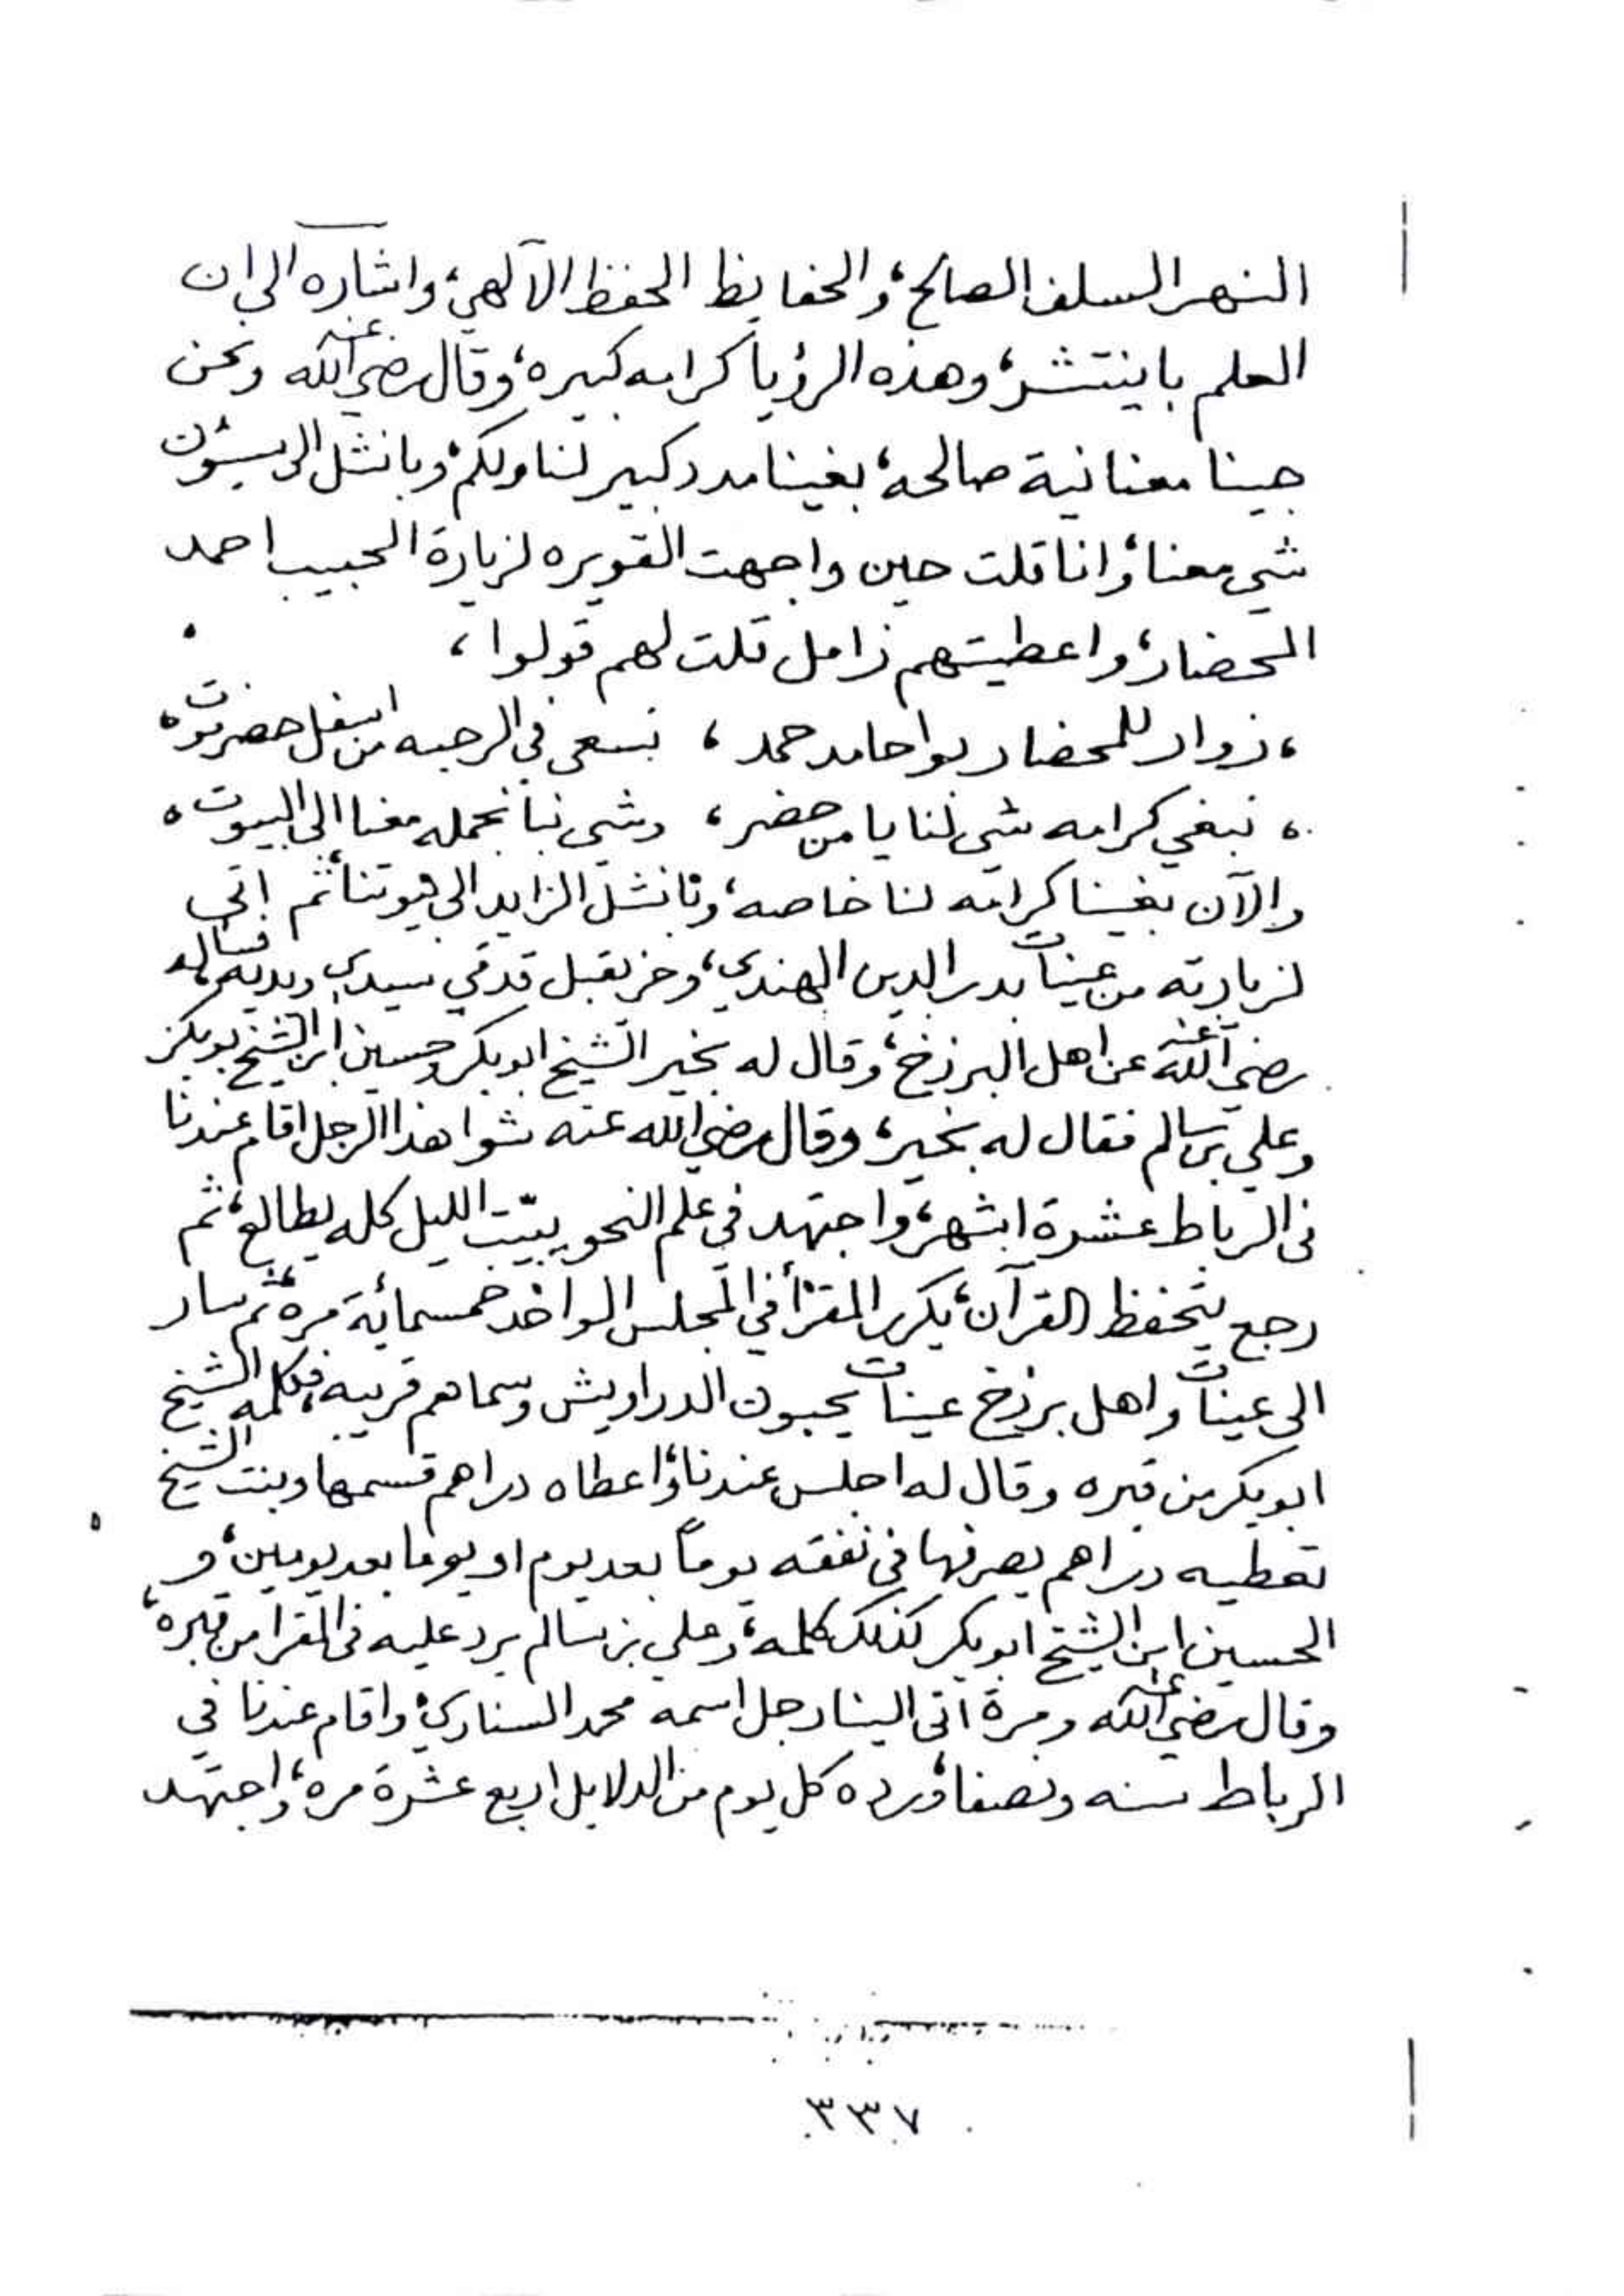 النهر السلف الصالح، والحفايظ الحفظ الآلهي، واشاره الى ان
العلم باينتشر، وهذه الرؤيا كرامه كبيره، وقال رضي الله عنه ونحن
جينا معنا نية صالحه، بغينا مدد كبير لنا ولكم، وبانشل الى سيئون
شي معنا، وانا قلت حين واجهت القويره لزيارة الحبيب احمد
المحضار، واعطيتهم زامل قلت لهم قولوا،
، زوار للمحضار بوا حامد حمد ، نسعى في الرحبه من اسفل حضرموت،
، نبغي كرامه شي لنا يا من حضر ، وشي نبا نحمله معنا الى البيوت،
والآن بغينا كرامه لنا خاصه، وبانشل الزايد الى بيوتنا، ثم اتى
لزيارته من عينات بدر الدين الهندي، وخر يقبل قدمي سيدي ويديه فساله
رضي الله عنه عن اهل البرزخ، وقال له بخير الشيخ ابوبكر وحسين ابن الشيخ بوبكر
وعلي بن سالم فقال له بخير، وقال رضي الله عنه شوا هذا الرجل اقام عندنا
في الرباط عشرة اشهر، واجتهد في علم النحو يبيّت الليل كله يطالع، ثم
رجع يتحفظ القرآن، يكرر المقرأ في المجلس الواحد خمسمائة مره، ثم سار
الى عينات واهل برزخ عينات يحبون الدراويش وسماهم قريبه، فكلمه الشيخ
ابوبكر من قبره وقال له اجلس عندنا، واعطاه دراهم قسمها وبنت الشيخ
تعطيه دراهم يصرفها في نفقه يوماً بعد يوم او يوما بعد يومين، و
الحسين ابن الشيخ ابوبكر كذلك كلمه، وعلي بن سالم يرد عليه في المقرا من قبره،
وقال رضي الله عنه ومرة أتى الينا رجل اسمه محمد السناري، واقام عندنا في
الرباط سنه ونصفا، ورده كل يوم من الدلايل اربع عشرة مره، واجتهد
٣٣٧